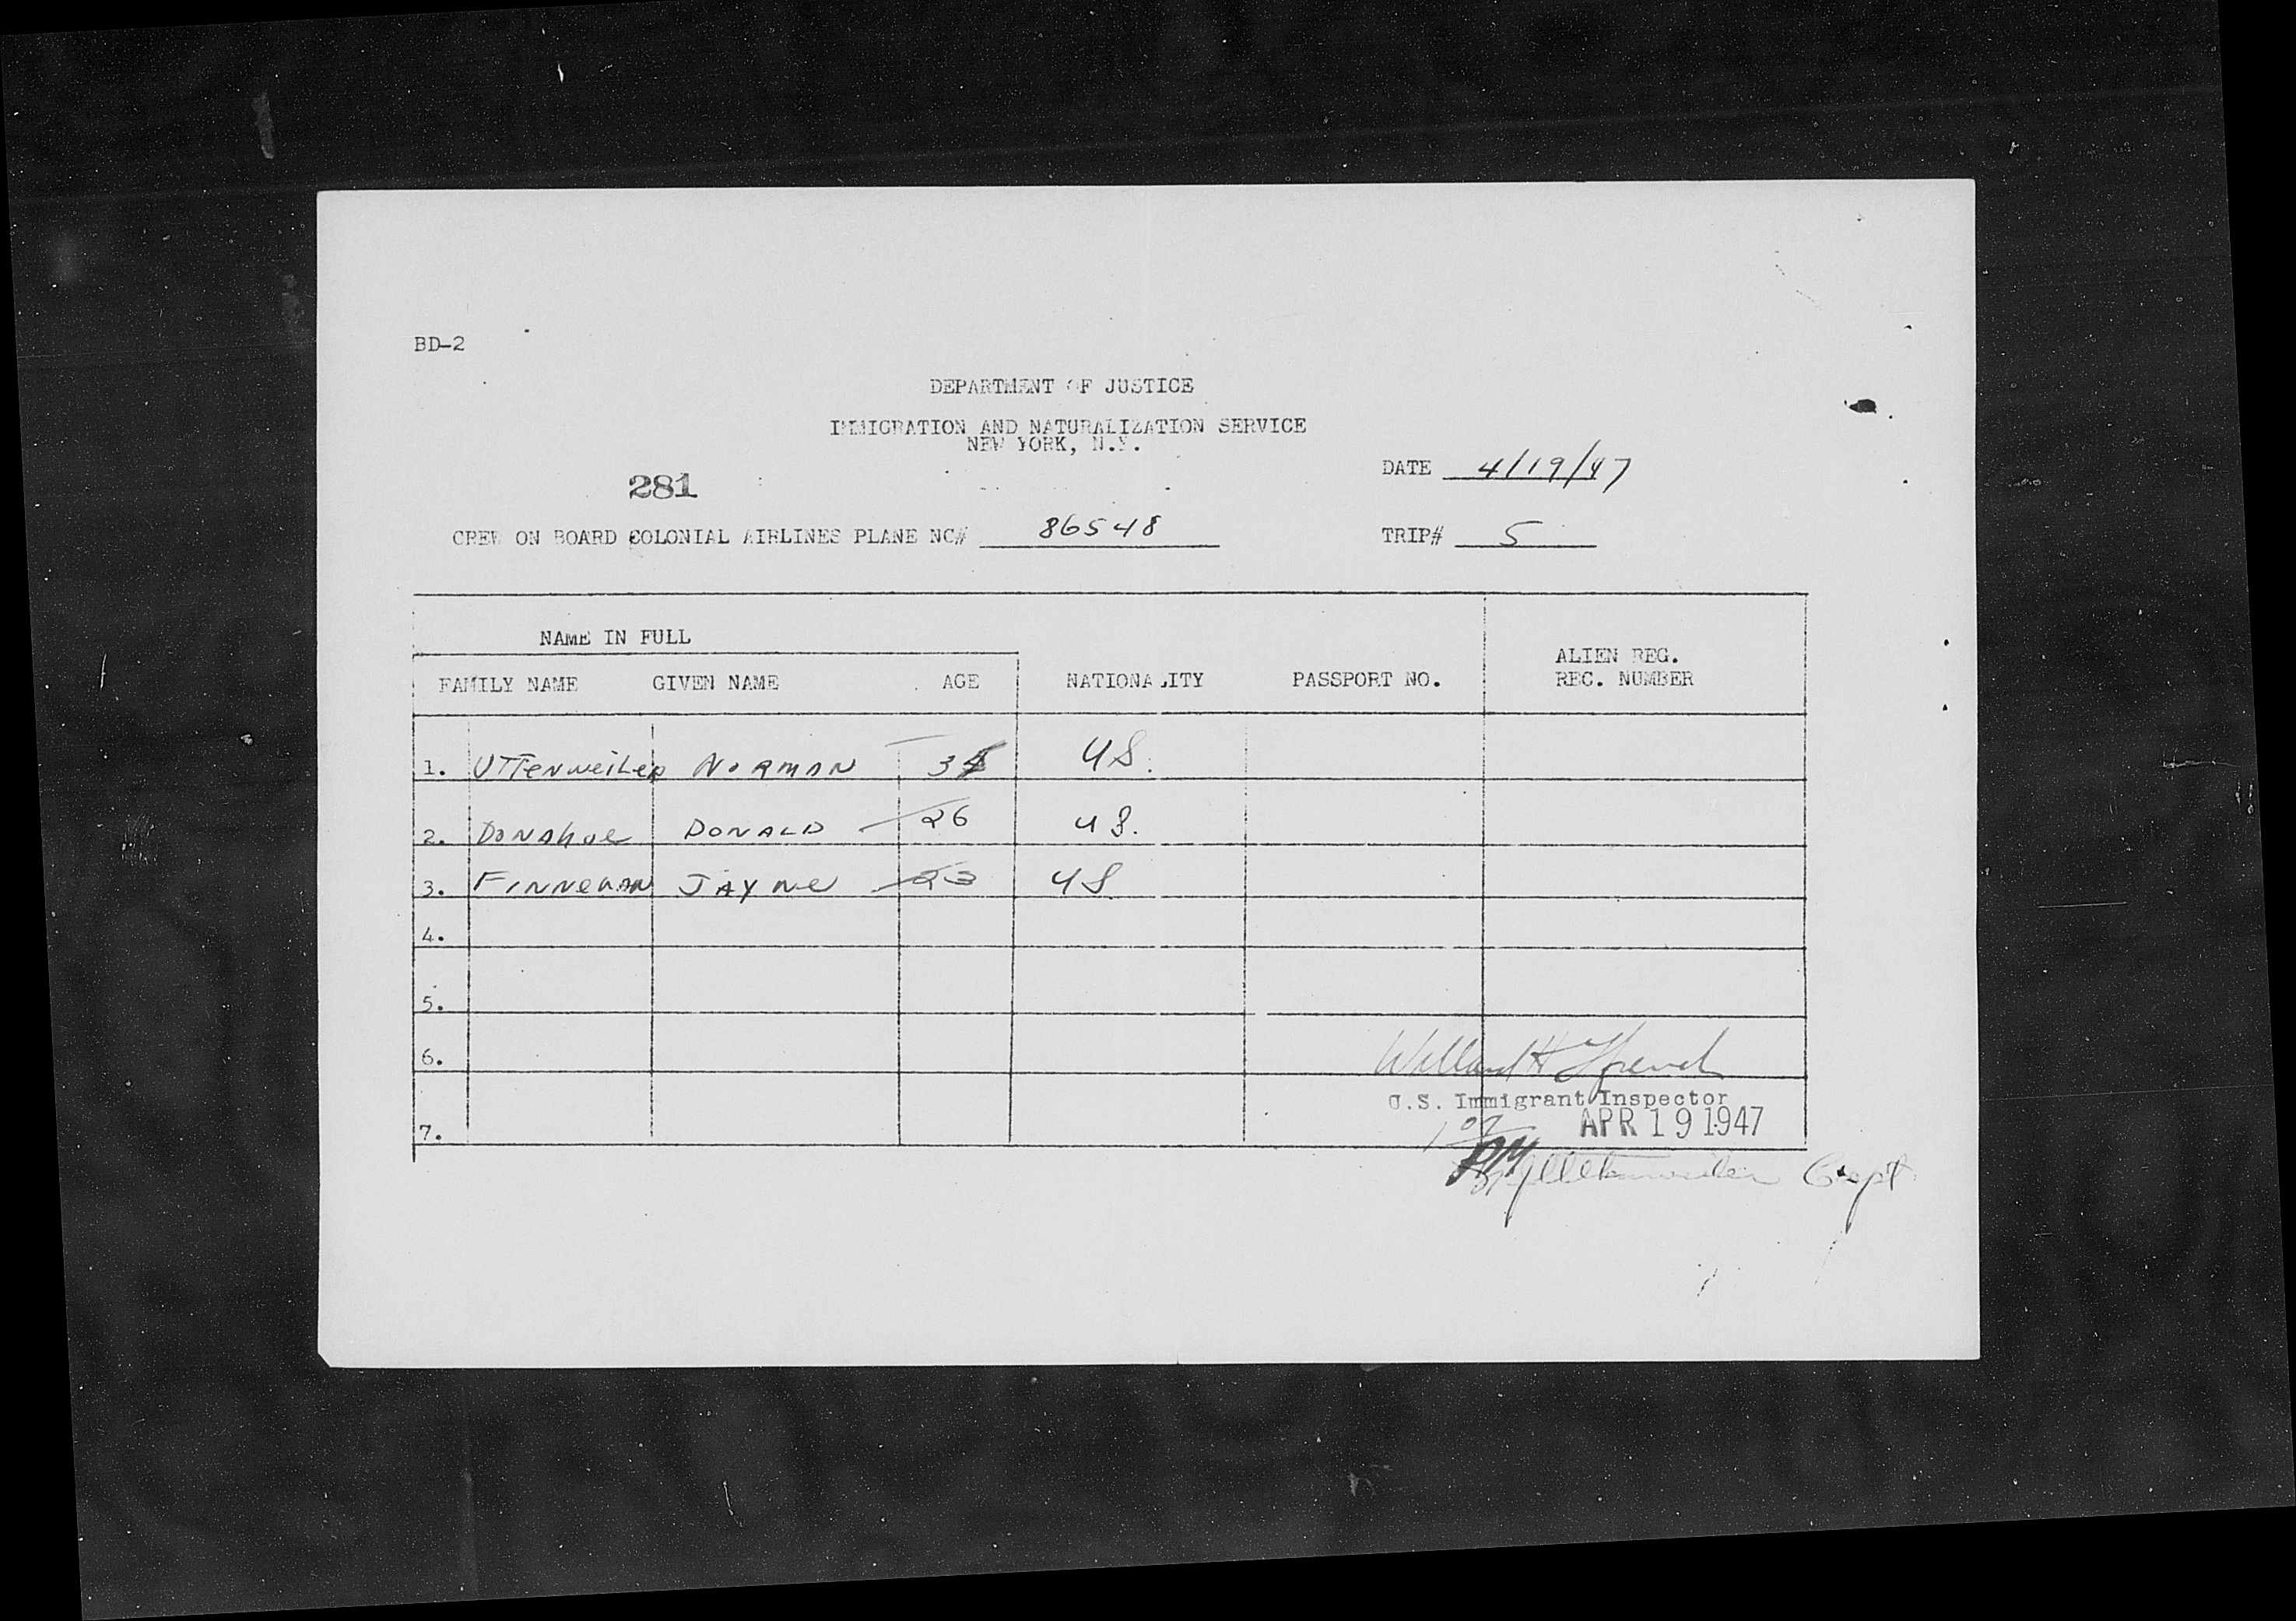 BD-2
DEPARTMENT OF JUSTICE
IMMIGRATION AND NATURALIZATION SERVICE
NEW YORK, N.Y.
DATE 4/19/47
281
CREW ON BOARD COLONIAL AIRLINES PLANE NC# 86548 TRIP# 5
NAME IN FULL
ALIEN REG.
FAMILY NAME GIVEN NAME AGE NATIONALITY PASSPORT NO. REC. NUMBER
1. UTTENWEILER NORMAN US.
2. DONAHOE DONALD 26 US.
3. FINNEGAN JAYNE 23 US
4.
5.
6. Willard H
U.S. Immigrant Inspector
APR 19 1947
7.
PM
Uttenweiler Capt